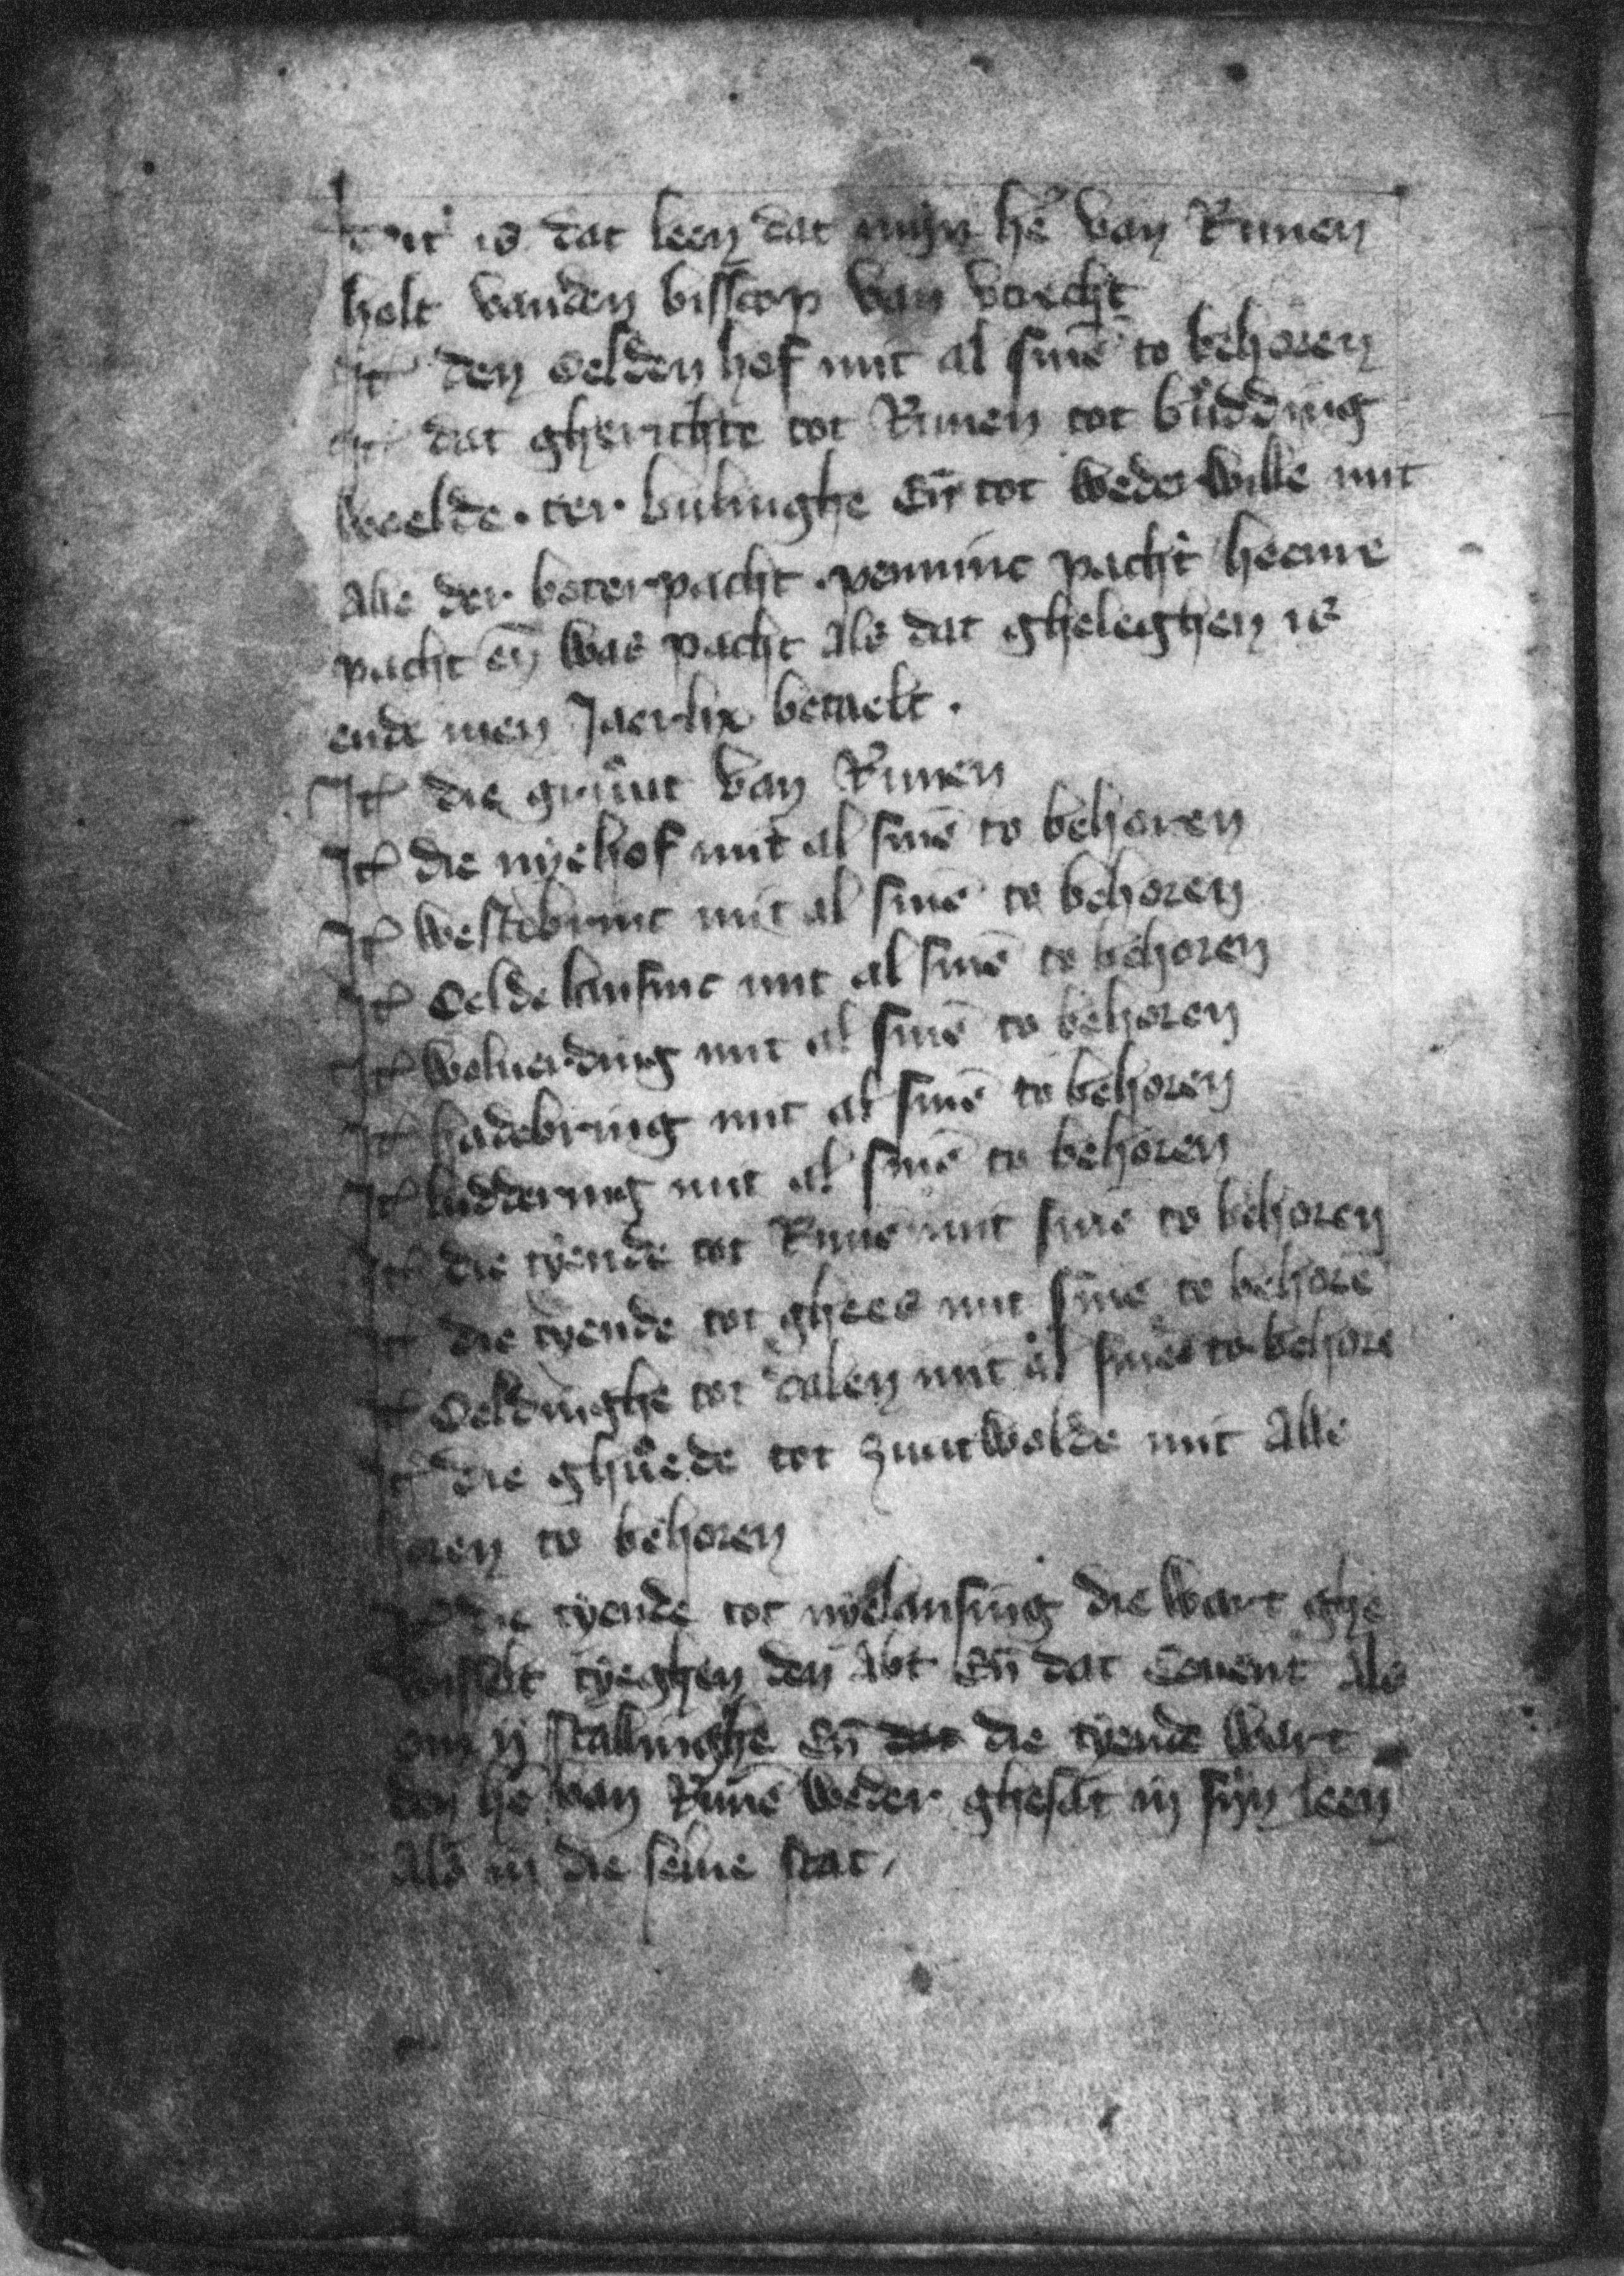 Dit is dat leen dat mijn hē van Runen
holt vanden bisscop van vtrecht
Itͫ den oelden hof mit al sinē to behoren
Itͫ dat gherichte tot Runen tot budding
weelde · ter · bulinghe eñ tot wederwille mit
alle der boterpacht · penninc pacht heeme
pacht eñ was pacht als dat gheleghen is
ende men Jaerlix betaelt ·
Itͫ die gruut van Runen
Itͫ die nyehof mit al sinē to behoren
Itͫ westebrinc mit al sinē to behoren
Itͫ oelde lansinc mit al sinē to behoren
Itͫ woluerding mit al sinē to behoren
Itͫ hadebring mit al sinē to behoren
Itͫ luddering mit al sinē to behoren
Itͫ die tyende tot Runē mit sinē to behoren
Itͫ die tyende tot ghees mit sinē to behorē
Itͫ oeldinghe tot dalen mit al sinē to behorē
Itͫ die ghuede tot zuutwolde mit alle
horen to behoren
Itͫ die tyende tot nyelansing die wart ghe
wisselt tyeghen den abt eñ dat Couent als
om ij stallinghe eñ dat die tyende wart
den hē van Runē weder ghesat in sijn leen
als in die selue stat /